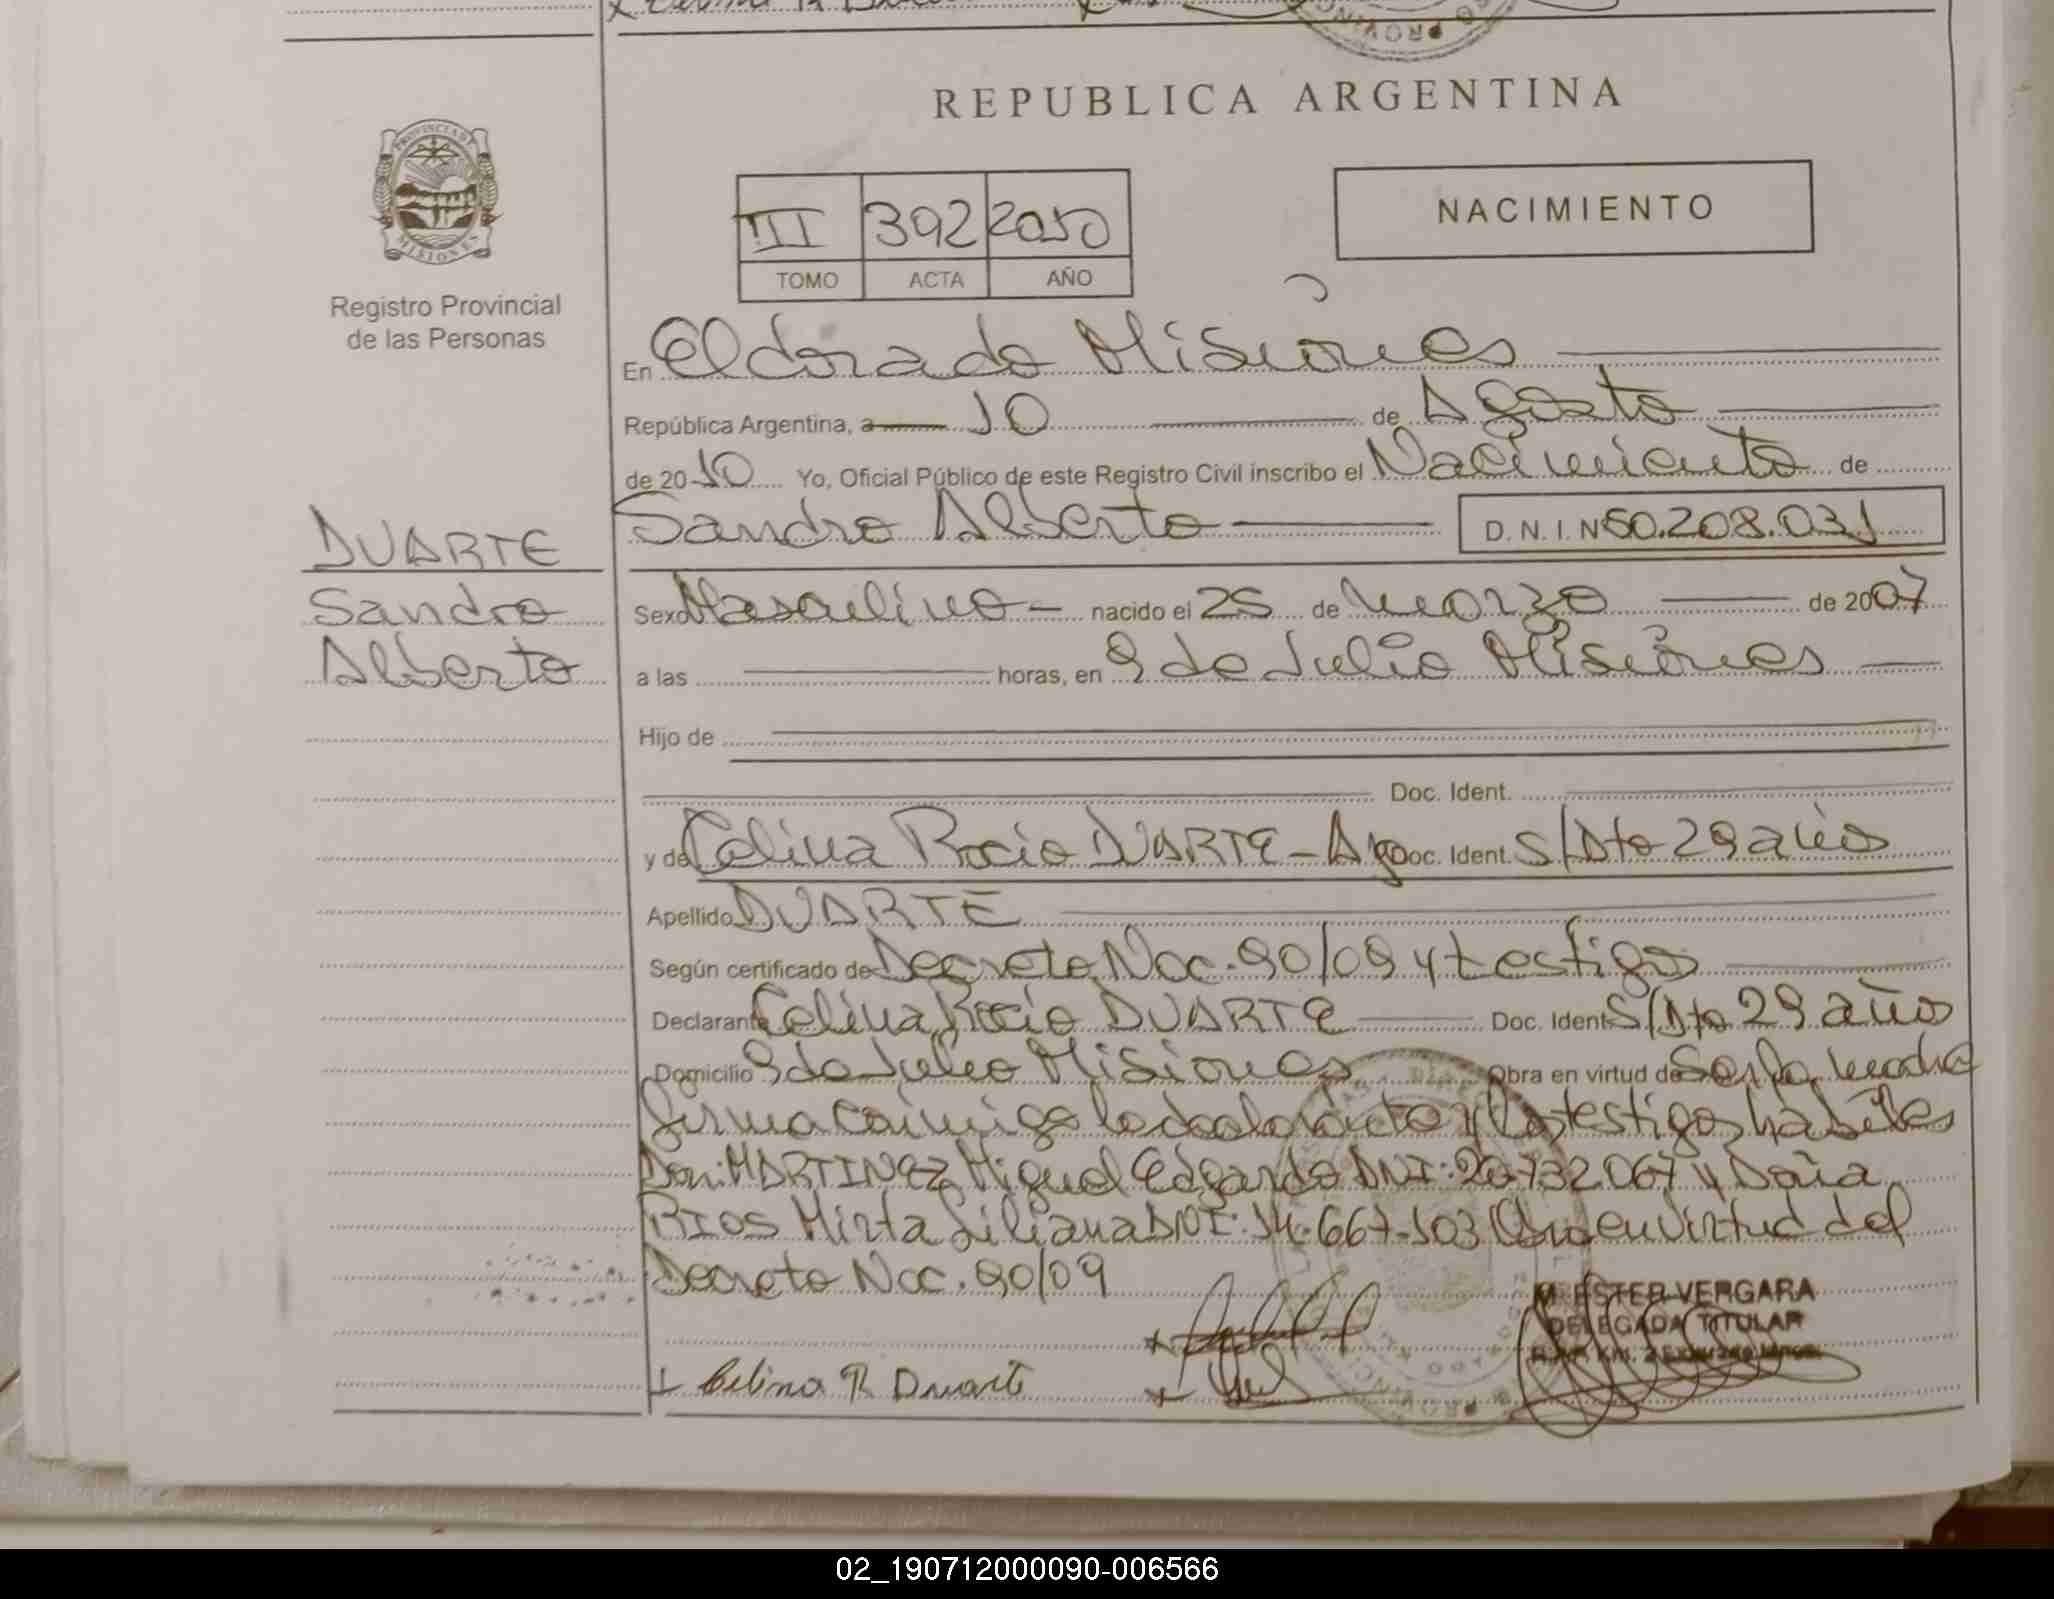 REPUBLICA ARGENTINA
PROVINCIA DE
MISIONES
Registro Provincial
de las Personas
III 392 2010
TOMO ACTA AÑO
NACIMIENTO
En Eldorado Misiones
República Argentina, a 10 de Agosto
de 2010 Yo, Oficial Público de este Registro Civil inscribo el Nacimiento de
Sandro Alberto D.N.I.N 50.208.031
DUARTE
Sandro
Alberto
Sexo Masculino nacido el 25 de marzo de 2007
a las horas, en 9 de Julio Misiones
Hijo de
Doc. Ident.
y de Celina Rocio DUARTE - Arg Doc. Ident. S/Dto 29 años
Apellido DUARTE
Según certificado de Decreto Nac. 90/09 y testigos
Declarante Celina Rocio DUARTE Doc. Ident S/Dto 29 años
Domicilio 9 de Julio Misiones Obra en virtud de Ser la madre
firma conmigo la declarante y los testigos hábiles
Don: MARTINEZ Miguel Edgardo DNI: 20.732.067 y Doña
RIOS Mirta Liliana DNI: 14.667.103 en virtud del
Decreto Nac. 90/09
M. ESTER VERGARA
DELEGADA TITULAR
Celina R Duarte
02_190712000090-006566